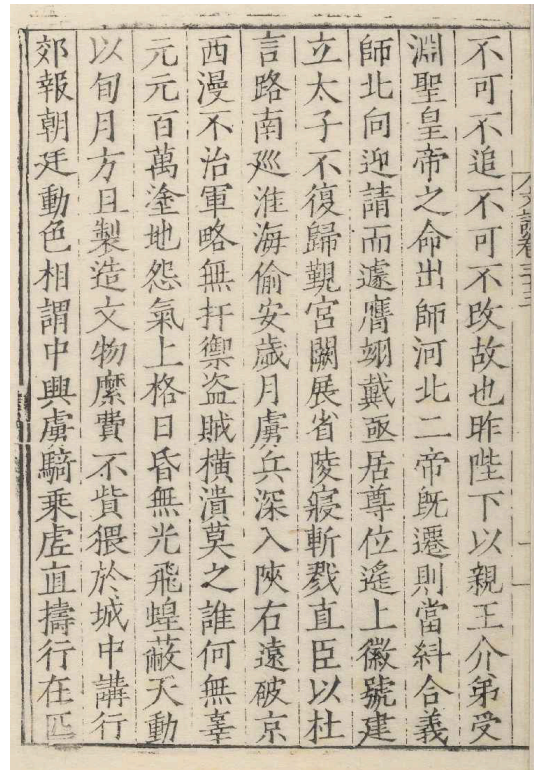 不可不追不可不改故也昨陛下以親王介弟受
淵聖皇帝之命出師河北二帝旣遷則當糾合義
師北向迎請而遽膺翊戴亟居尊位遥上徽號建
立太子不復歸覲宮闕展省陵寢斬戮直臣以杜
言路南廵淮海偷安歲月虜兵深入陝右遠破京
西漫不治軍略無扞禦盗賊橫潰莫之誰何無辜
元元百萬塗地怨氣上格日昏無光飛蝗蔽天動
以旬月方且製造文物糜費不貲猥於城中講行
郊報朝廷動色相謂中興虜騎乗虚直擣行在匹